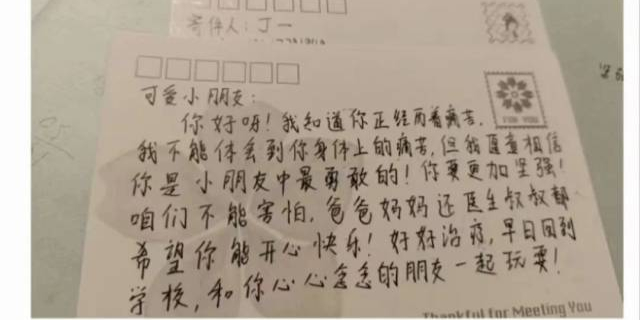 寄件人:丁一
可爱小朋友:
你好呀!我知道你正经历着痛苦,
我不能体会到你身体上的痛苦,但我
相信
你是小朋友中最勇敢的!你要更加坚强!
咱们不能害怕,爸爸妈妈还医生叔叔都
希望你能开心快乐!好好治疗,早日回到
学校,和你心心念念的朋友一起玩耍!
FOR YOU
Thankful for Meeting You